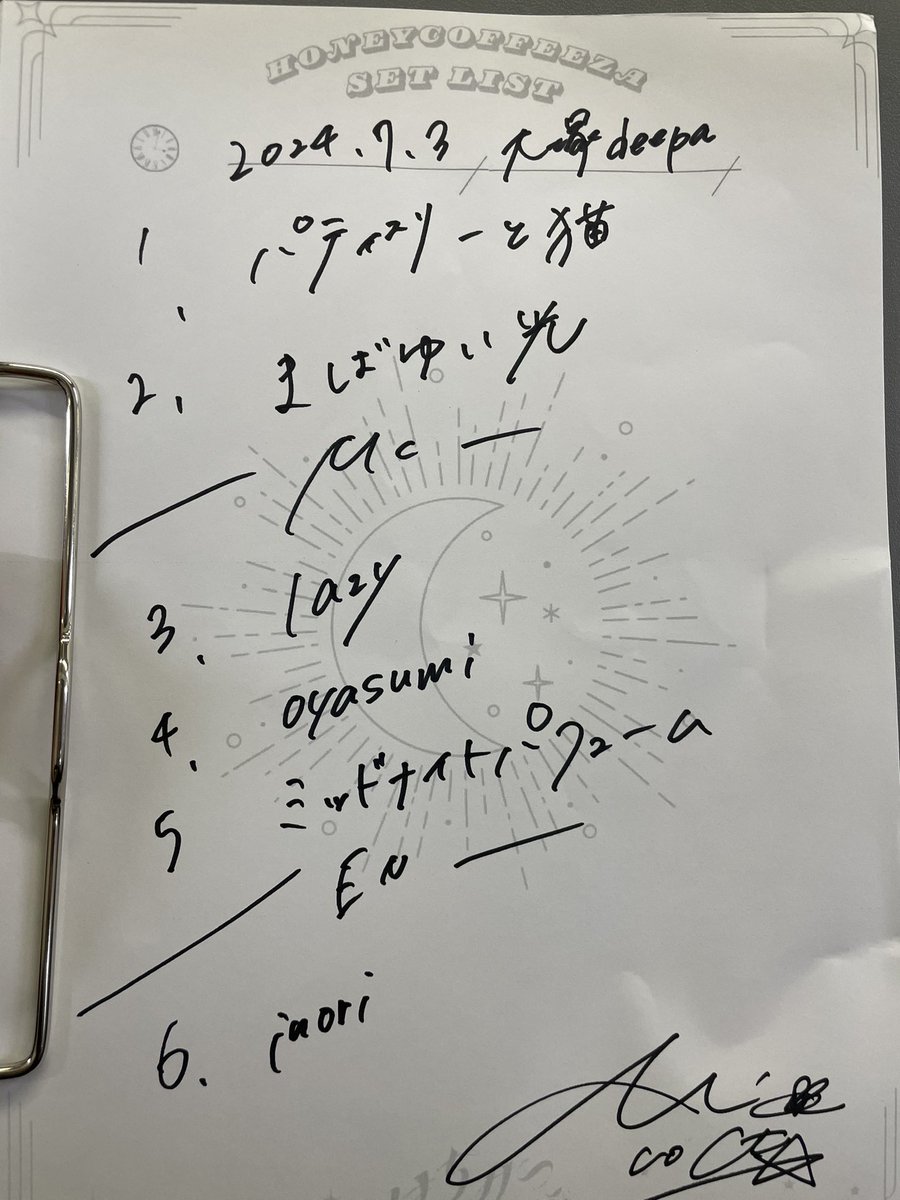 HONEYCOFFEEZA
SET LIST
2024.7.3 大塚deepa
1、パティスリーと猫
2、まばゆい光
MC
3、lazy
4、oyasumi
5 ミッドナイトパフューム
EN
6. inori